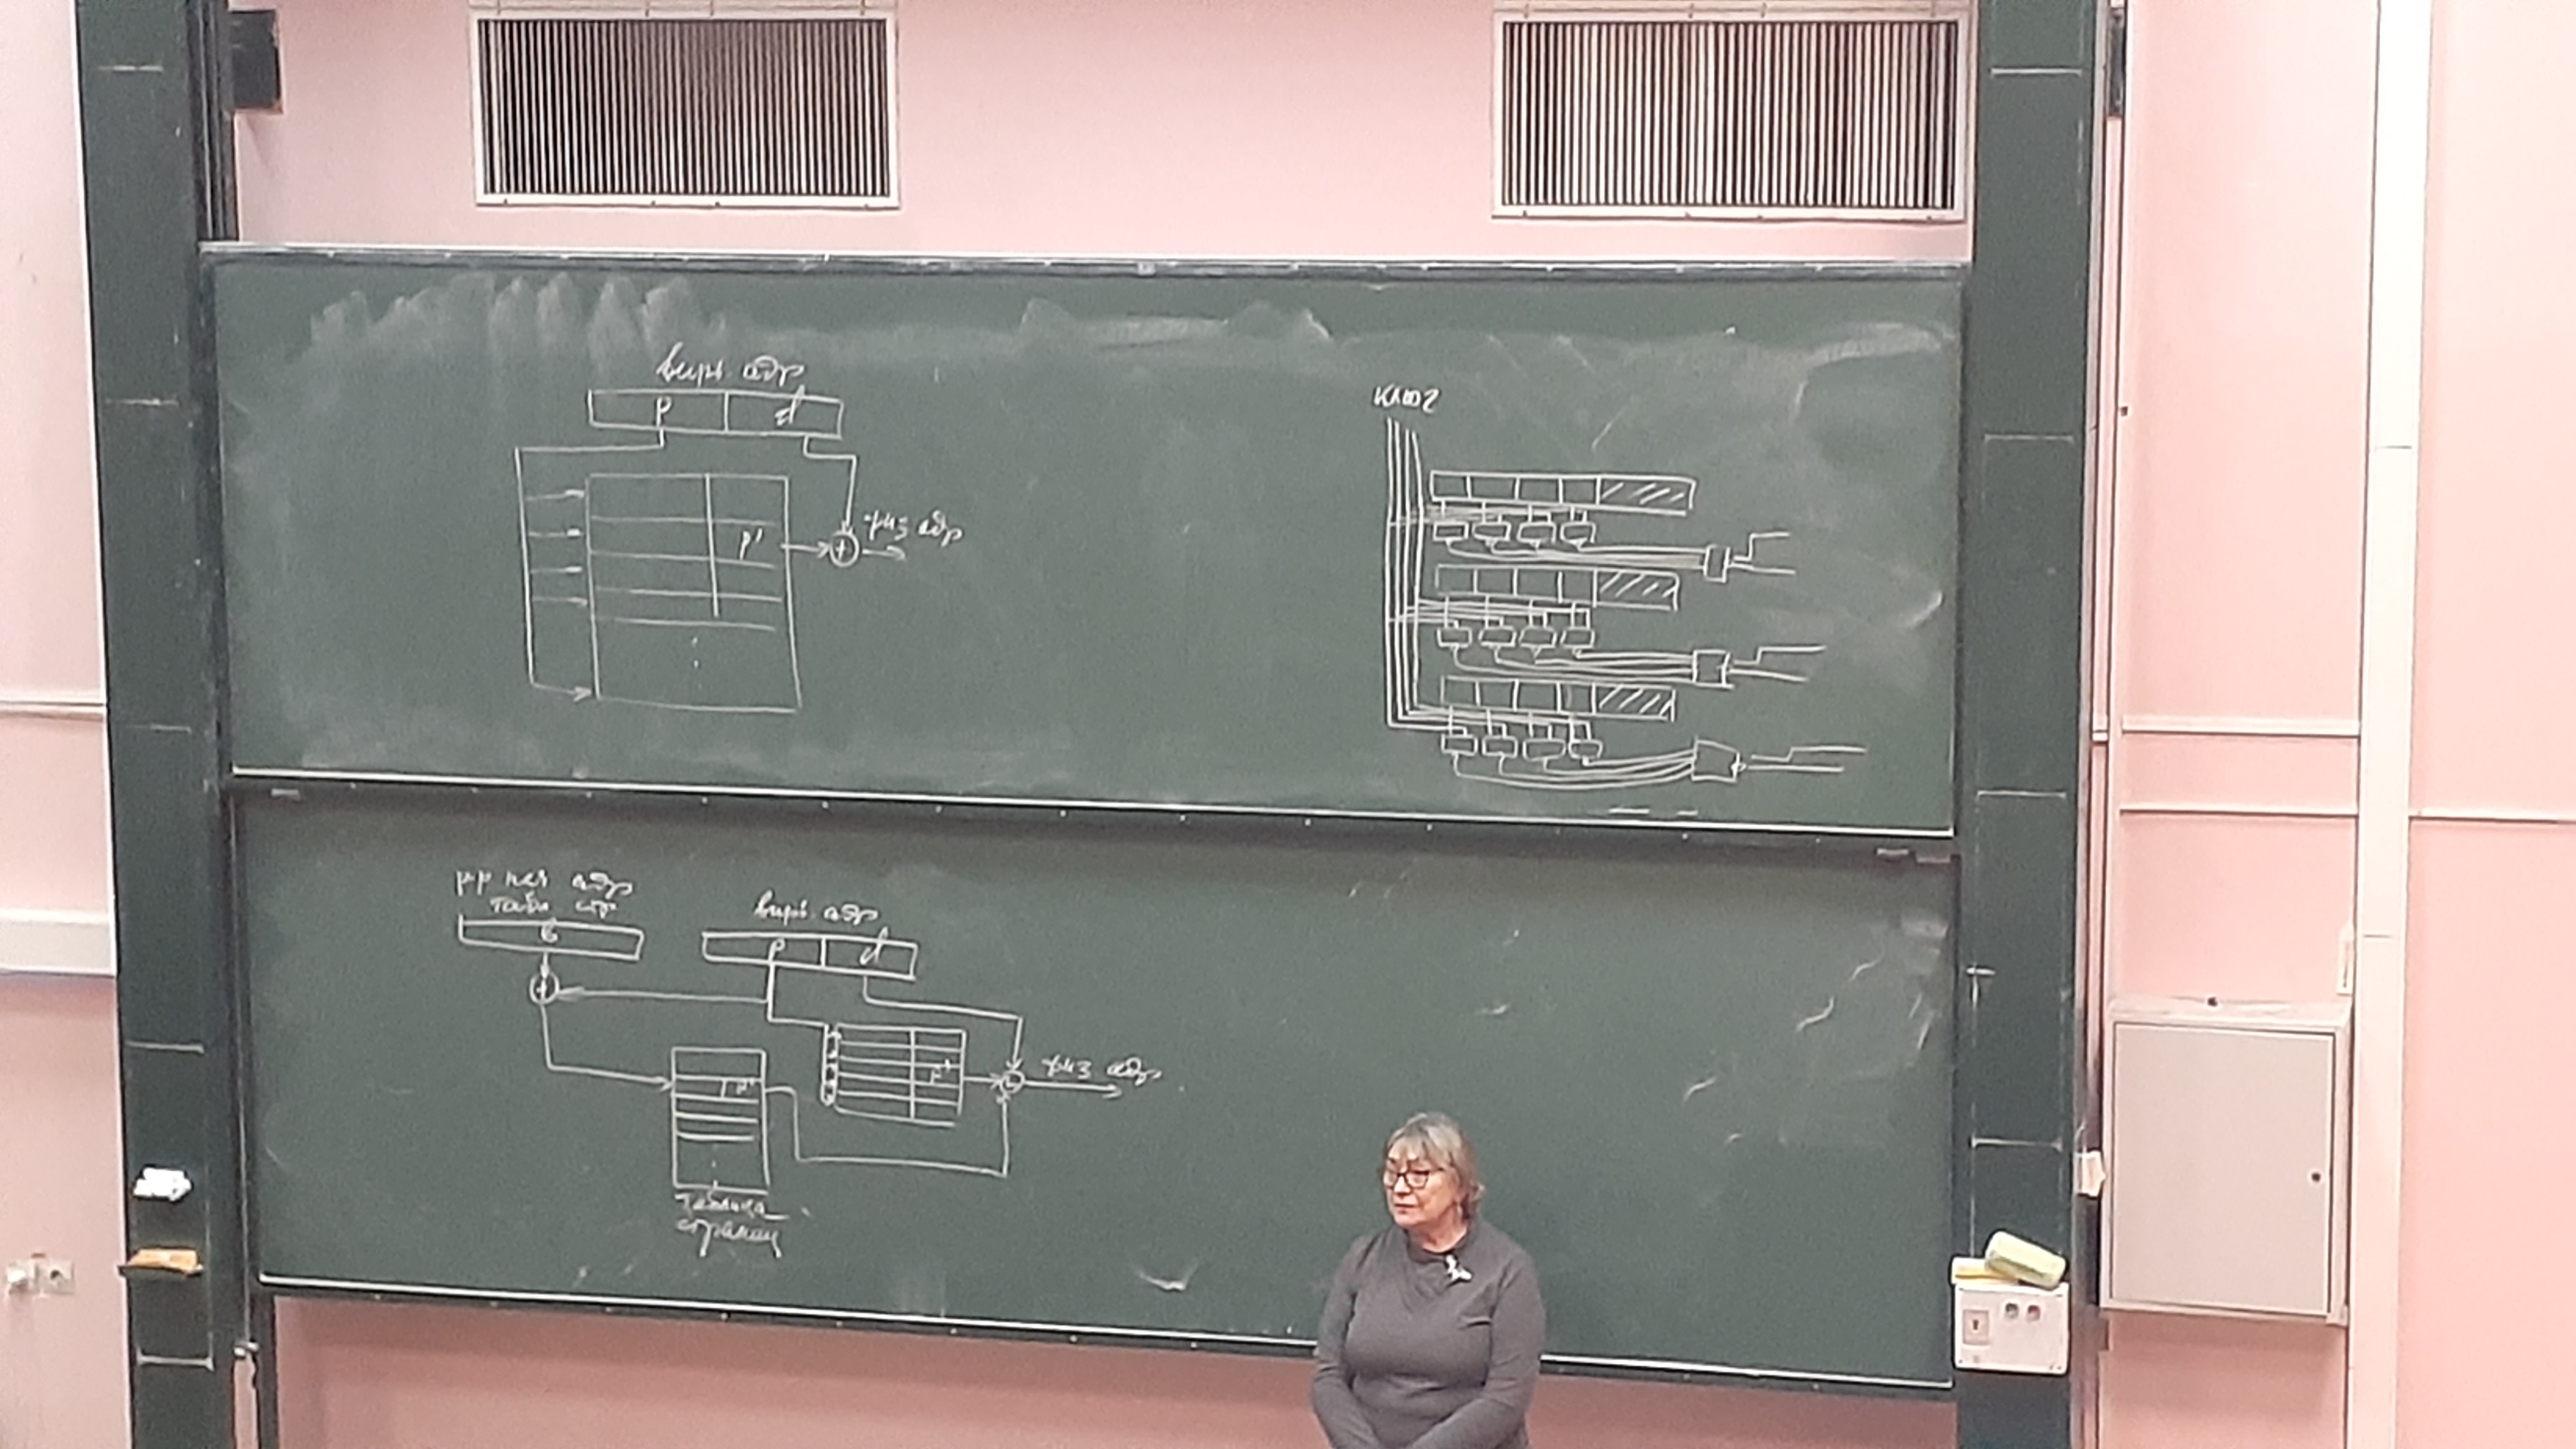 вирт. адр
p d
p'
физ адр
ключ
рг нач адр
табл стр
б
вирт. адр
p d
p'
p'
физ адр
таблица
страниц